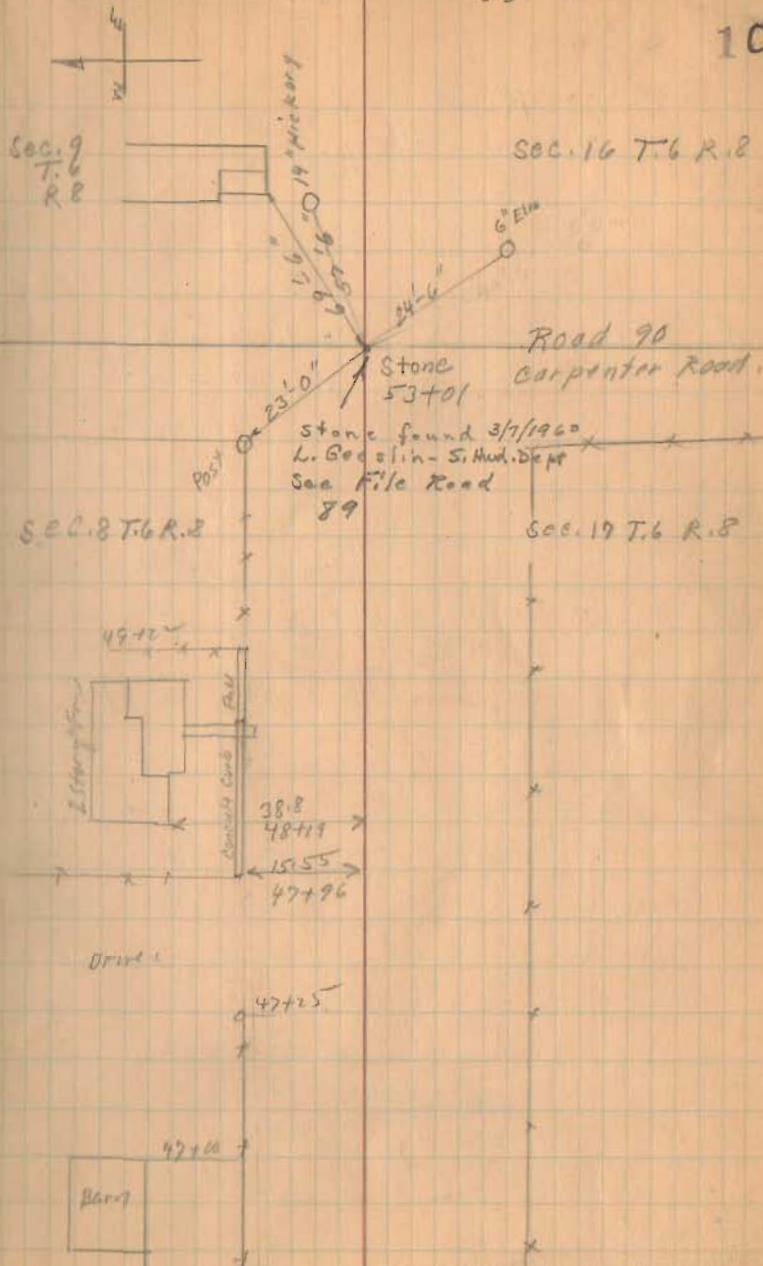 10
E
W
Sec. 9
T.6
R 8
19" Hickory
Sec. 16 T.6 R.8
6" Elm
24'-6"
Road 90
Carpenter Road.
Stone
53+01
23'-0"
Post
Stone found 3/7/1960
See File Road
89
Sec. 8 T.6 R.8
Sec. 17 T.6 R.8
Concrete Curb
38.8
48+19
15.55
47+96
Drive
47+25
47+00
Barn